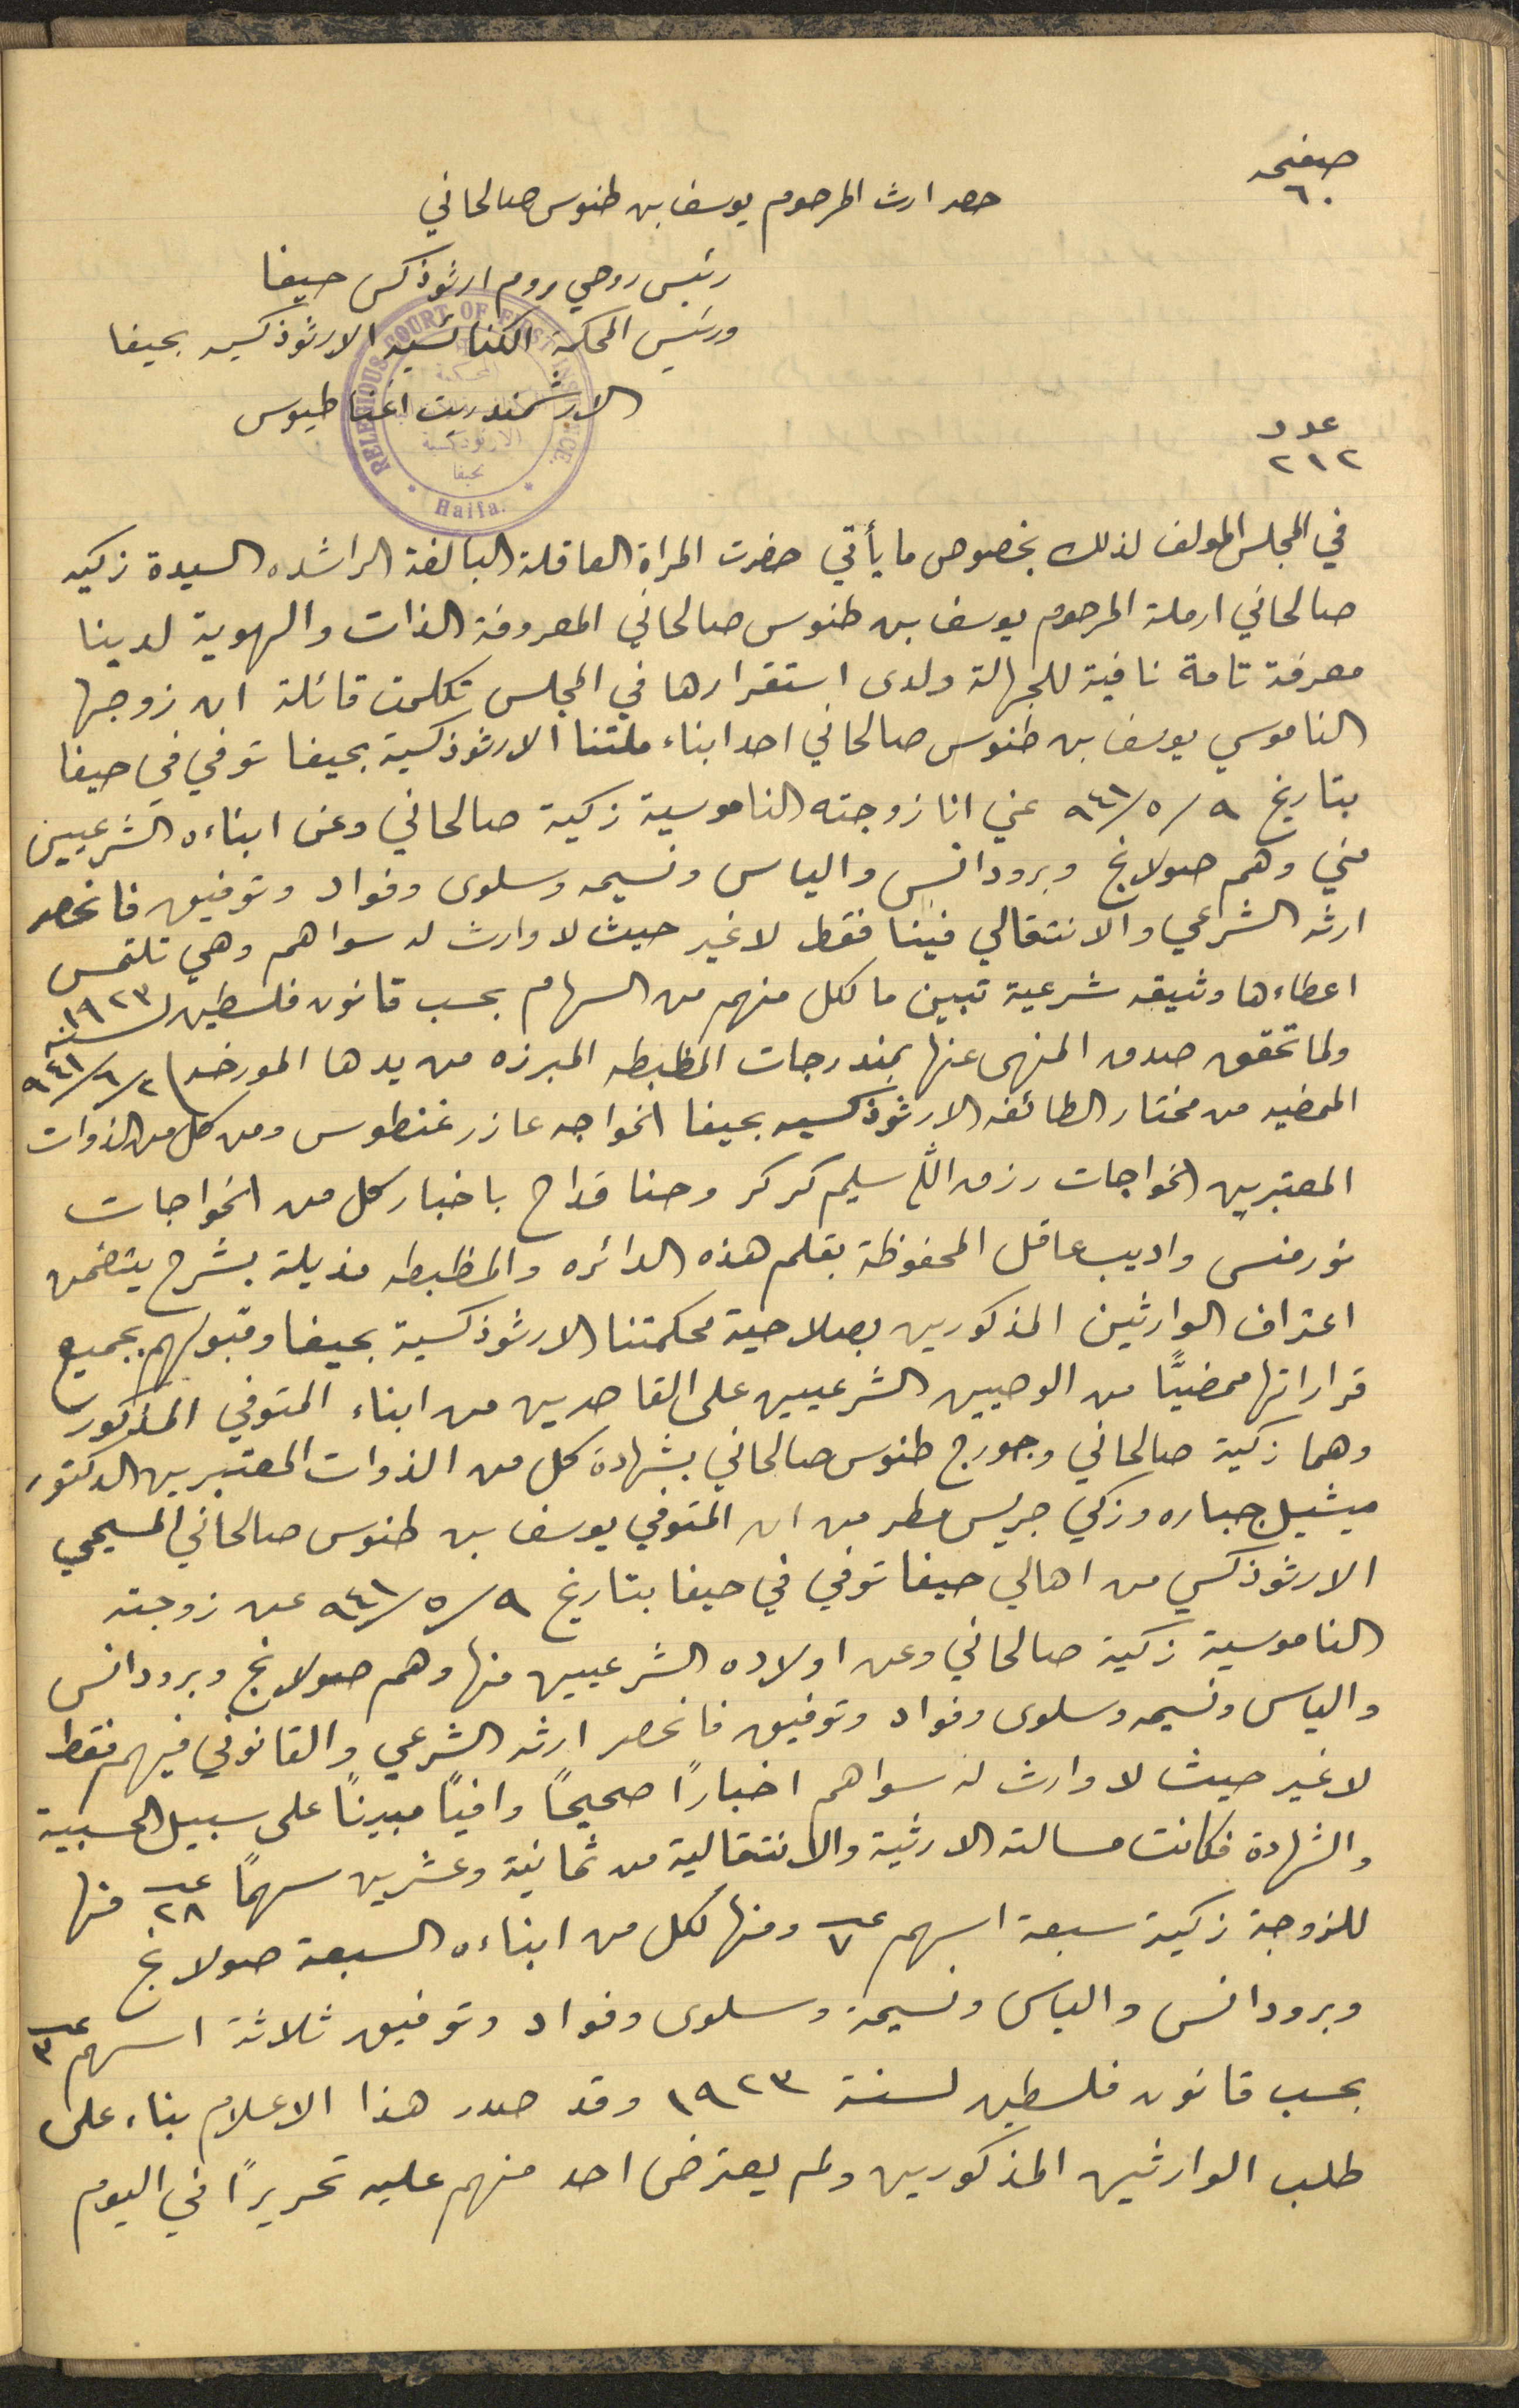 صفيحه
٦٠
حصر ارث المرحوم يوسف بن طنوس صالحاني
رئيس روحي روم ارثوذكس حيفا
ورئيس المحكمة الكنائسيه الارثوذكسيه بحيفا
الارشمندريت اغناطيوس
RELEGIOUS COURT OF FIRST INSTANCE.
المحكمة
الارثوذكسية
بحيفا
Haifa.
عدد
٢١٢
في المجلس المولف لذلك بخصوص ما يأتي حضرت المراة العاقلة البالغة الراشده السيدة زكيه
صالحاني ارملة المرحوم يوسف بن طنوس صالحاني المعروفة الذات والهوية لدينا
معرفة تامة نافية للجهالة ولدى استقرارها في المجلس تكلمت قائلة ان زوجها
الناموسي يوسف بن طنوس صالحاني احد ابناء ملتنا الارثوذكسية بحيفا توفي في حيفا
بتاريخ ٩/٥/٩٤١ عني انا زوجته الناموسية زكية صالحاني وعن ابناءه الشرعيين
مني وهم صولانج وبرودانس والياس ونسيمه وسلوى وفواد وتوفيق فانحصر
ارثه الشرعي والانتقالي فينا فقط لا غير حيث لا وارث له سواهم وهي تلتمس
اعطاءها وثيقه شرعية تبين ما لكل منهم من السهام بحسب قانون فلسطين لسنة ١٩٢٣
ولما تحقق صدق المنهى عنها بمندرجات المظبطه المبرزه من يدها المورخه ٢/٦/٩٤١
الممضيه من مختار الطائفه الارثوذكسيه بحيفا الخواجه عازر غنطوس ومن كل من الذوات
المعتبرين الخواجات رزق الله سليم كركر وحنا قداح باخبار كل من الخواجات
نور منسى واديب عاقل المحفوظة بقلم هذه الدائره والمظبطه مذيلة بشرح يتضمن
اعتراف الوارثين المذكورين بصلاحية محكمتنا الارثوذكسية بحيفا وقبولهم بجميع
قراراتها ممضيًّا من الوصيين الشرعيين على القاصرين من ابناء المتوفي المذكور
وهما زكية صالحاني وجورج طنوس صالحاني بشهادة كل من الذوات المعتبرين الدكتور
ميشيل جباره وزكي جريس مطر من ان المتوفي يوسف بن طنوس صالحاني المسيحي
الارثوذكسي من اهالي حيفا توفي في حيفا بتاريخ ٩/٥/٩٤١ عن زوجته
الناموسية زكية صالحاني وعن اولاده الشرعيين منها وهم صولانج وبرودانس
والياس ونسيمه وسلوى وفواد وتوفيق فانحصر ارثه الشرعي والقانوني فيهم فقط
لا غير حيث لا وارث له سواهم اخبارًا صحيحًا وافيًا مبينًا على سبيل الحسبية
والشهادة فكانت مسالته الارثية والانتقالية من ثمانية وعشرين سهمًا عـ ٢٨ منها
للزوجة زكية سبعة اسهم عـ ٧ ومنها لكل من ابناءه السبعة صولانج
وبرودانس والياس ونسيمة وسلوى وفواد وتوفيق ثلاثة اسهم عـ ٣
بحسب قانون فلسطين لسنة ١٩٢٣ وقد صدر هذا الاعلام بناء على
طلب الوارثين المذكورين ولم يعترض احد منهم عليه تحريرًا في اليوم